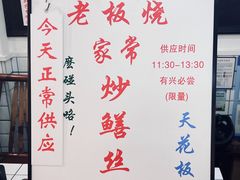 今天正常供应
老板烧
家常
炒鳝丝
麽碰头咯！
供应时间
11:30-13:30
有兴必尝
(限量)
天花板